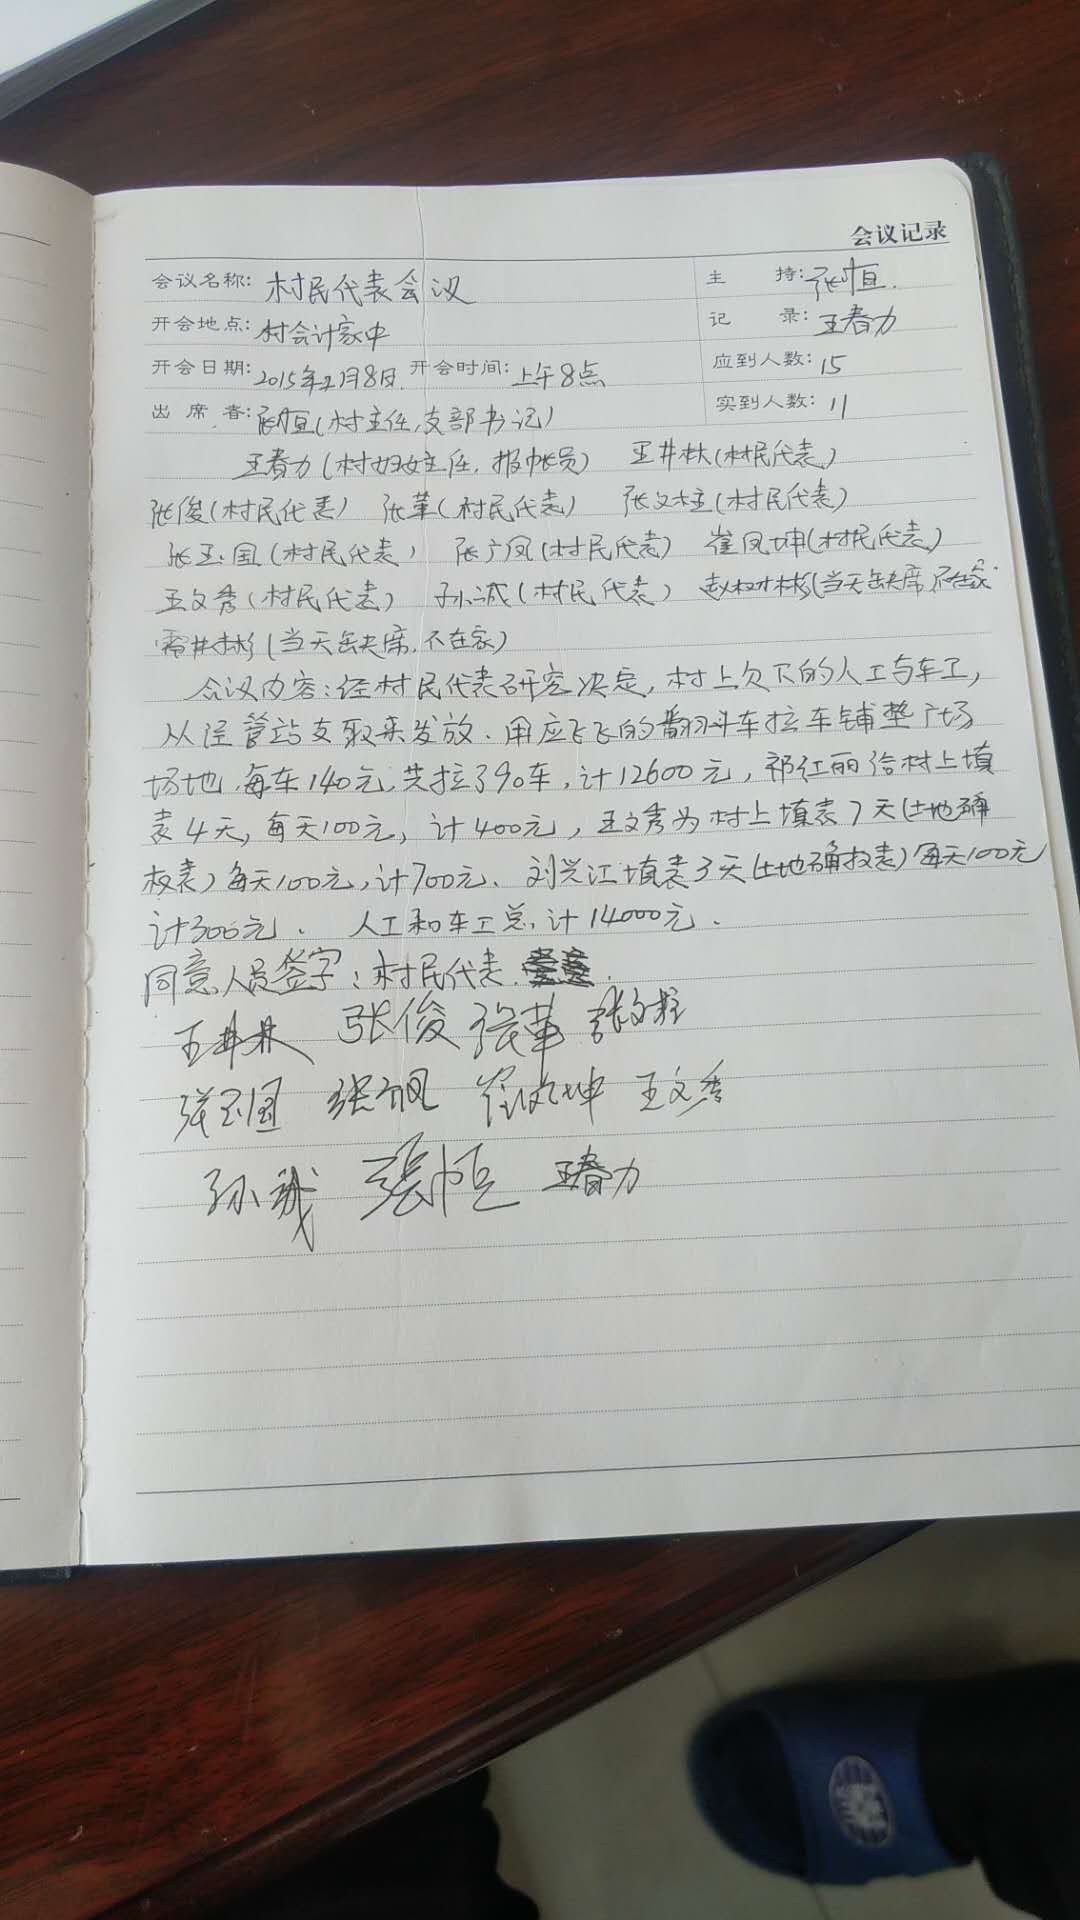 会议记录
会议名称: 村民代表会议 主 持: 张恒.
开会地点: 村会计家中 记 录: 王春力
开会日期: 2015年2月8日. 开会时间: 上午8点 应到人数: 15
出 席 者: 张恒(村主任,支部书记) 实到人数: 11
王春力(村妇女主任, 报帐员) 王井林(村民代表)
张俊(村民代表) 张革(村民代表) 张文柱(村民代表)
张玉国(村民代表) 张广凤(村民代表) 崔凤坤(村民代表)
王文秀(村民代表) 孙诚(村民代表) 赵树彬(当天缺席,不在家
井彬(当天缺席,不在家)
会议内容:经村民代表研究决定,村上欠下的人工与车工,
从经管站支取来发放.用应飞飞的翻斗车拉车铺垫广场
场地,每车140元,共拉了90车,计12600元,祁红丽给村上填
表4天,每天100元,计400元,王文秀为村上填表7天(土地确
权表)每天100元,计700元、刘兴江填表3天(土地确权表)每天100元
计300元. 人工和车工总计14000元.
同意人员签字:村民代表
王井林 张俊 张革 张文柱
张玉国 张广凤 崔凤坤 王文秀
孙诚 張恒 王春力